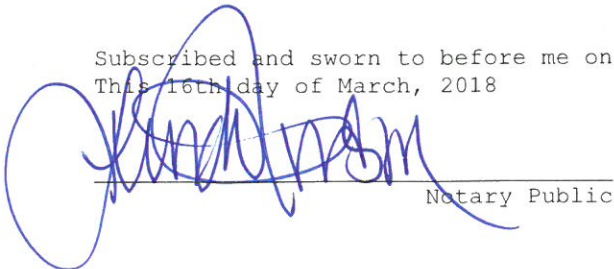 Subscribed and sworn to before me on
This 16th day of March, 2018
Notary Public